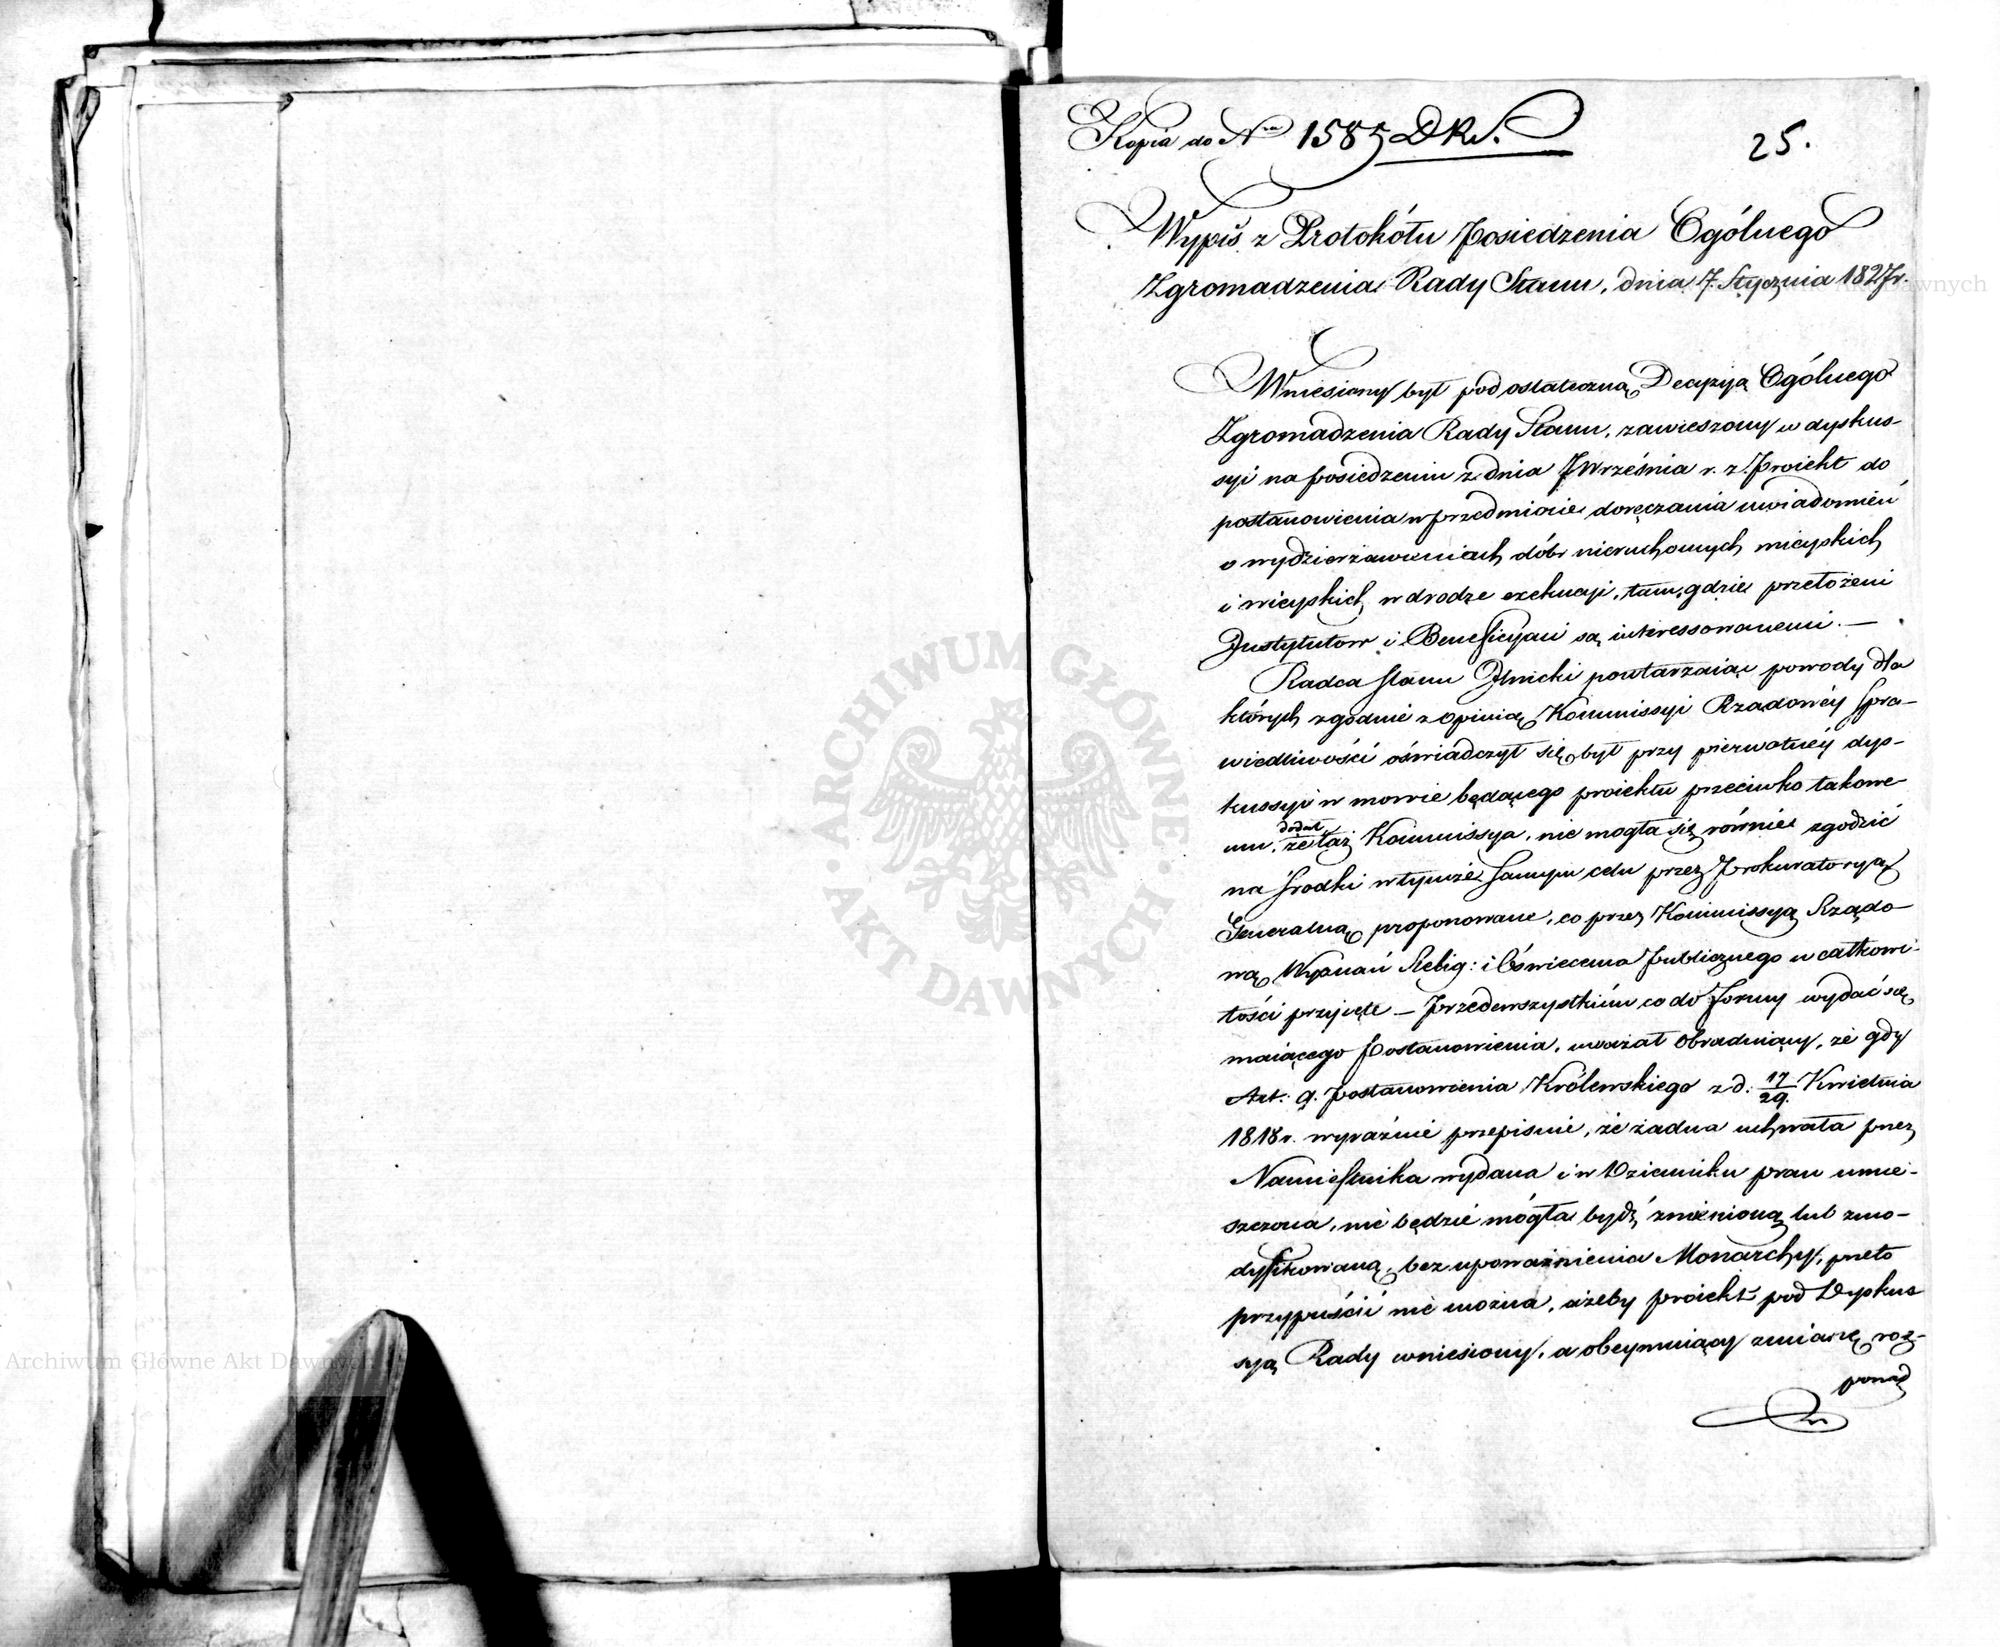 Kopia do Nru 1585 DRS.
25.
Wypis z Protokółu Posiedzenia Ogólnego
Zgromadzenia Rady Stanu, dnia 7. Stycznia 1827r.
Wniesiony był pod ostateczną Decyzyą Ogólnego
Zgromadzenia Rady Stanu, zawieszony w dyskus-
syi na posiedzeniu z dnia 7 Września r. z. Proiekt do
postanowienia w przedmiocie doręczania uwiadomień
o wydzierżawieniach dóbr nieruchomych mieyskich
i wieyskich w drodze exekucyi, tam, gdzie przełożeni
Instytutow i Beneficyani są interessowanemi. —
Radca Stanu Ilnicki powtarzaiąc powody dla
których zgodnie z opinią Kommissyi Rządowéy Spra-
wiedliwości oświadczył się był przy pierwotnéy dys-
kussyi w mowie będącego proiektu przeciwko takowe-
mu, dodał, że taż Kommissya, nie mogła się równie zgodzić
na środki w tymże samym celu przez Prokuratoryą
Generalną proponowane, co przez Kommissyą Rządo-
wą Wyznań Relig: i Oświecenia Publicznego w całkowi-
tości przyjęte — Przedewszystkiém co do formy wydać się
maiącego Postanowienia, uważał Obraduiący, że gdy
Art: 9. Postanowienia Królewskiego z d. 17/29. Kwietnia
1818 r. wyraźnie przepisuie, że żadna uchwała przez
Namiestnika wydana i w Dzienniku praw umie-
szczona, nie będzie mógła bydź zmienioną lub zmo-
dyfikowaną, bez upoważnienia Monarchy, przeto
przypuścić nie można, ażeby proiekt pod Dyskus
syą Rady wniesiony, a obeymuiący zmianę roz-
porząd
Archiwum Główne Akt Dawnych
ARCHIWUM GŁÓWNE AKT DAWNYCH